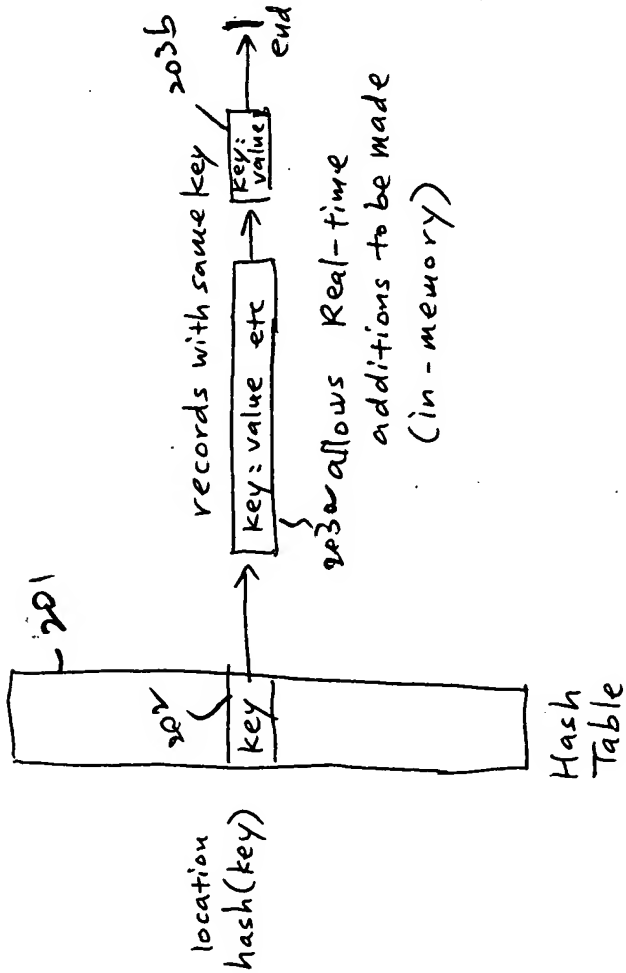 location
hash(key)
201
202
key
Hash
Table
records with same key
203b
key: value etc
key:
value
end
203a
allows Real-time
additions to be made
(in-memory)